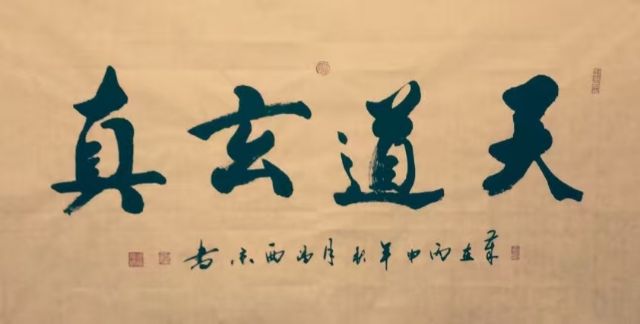 天道玄真
歲在丙申年秋月於西京書